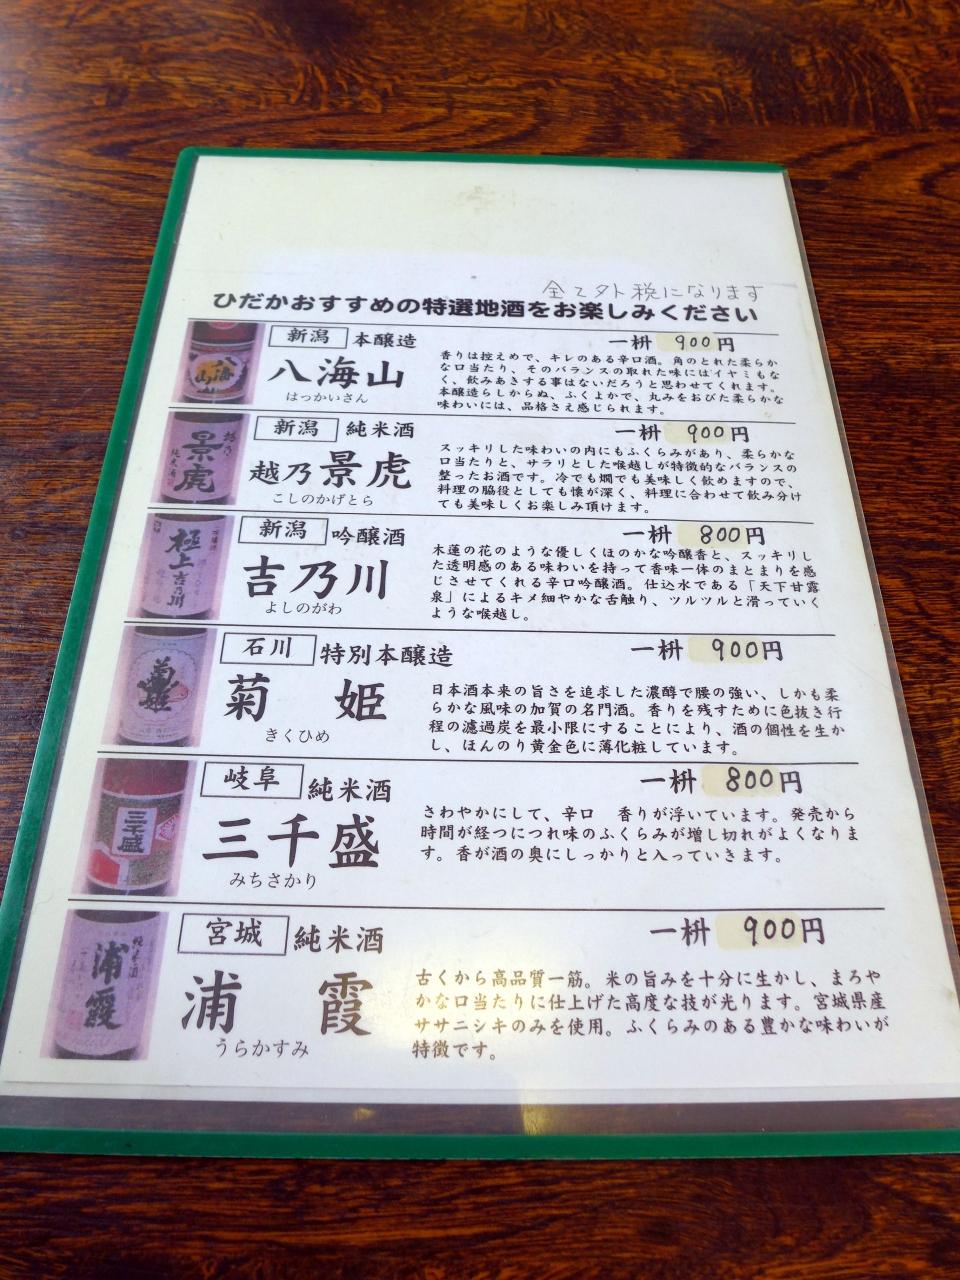 全て外税になります
ひだかおすすめの特選地酒をお楽しみください
新潟 本醸造 一枡 900円
八海山
はっかいさん
香りは控えめで、キレのある辛口酒。角のとれた柔らか
な口当たり、そのバランスの取れた味にはイヤミもな
く、飲みあきする事はないだろうと思わせてくれます。
本醸造らしからぬ、ふくよかで、丸みをおびた柔らかな
味わいには、品格さえ感じられます。
新潟 純米酒 一枡 900円
越乃景虎
こしのかげとら
スッキリした味わいの内にもふくらみがあり、柔らかな
口当たりと、サラリとした喉越しが特徴的なバランスの
整ったお酒です。冷でも燗でも美味しく飲めますので、
料理の脇役としても懐が深く、料理に合わせて飲み分け
ても美味しくお楽しみ頂けます。
新潟 吟醸酒 一枡 800円
吉乃川
よしのがわ
木蓮の花のような優しくほのかな吟醸香と、スッキリし
た透明感のある味わいを持って香味一体のまとまりを感
じさせてくれる辛口吟醸酒。仕込水である「天下甘露
泉」によるキメ細やかな舌触り、ツルツルと滑っていく
ような喉越し。
石川 特別本醸造 一枡 900円
菊 姫
きくひめ
日本酒本来の旨さを追求した濃醇で腰の強い、しかも柔
らかな風味の加賀の名門酒。香りを残すために色抜き行
程の濾過炭を最小限にすることにより、酒の個性を生か
し、ほんのり黄金色に薄化粧しています。
岐阜 純米酒 一枡 800円
三千盛
みちさかり
さわやかにして、辛口 香りが浮いています。発売から
時間が経つにつれ味のふくらみが増し切れがよくなりま
す。香が酒の奥にしっかりと入っていきます。
宮城 純米酒 一枡 900円
浦 霞
うらかすみ
古くから高品質一筋。米の旨みを十分に生かし、まろや
かな口当たりに仕上げた高度な技が光ります。宮城県産
ササニシキのみを使用。ふくらみのある豊かな味わいが
特徴です。
八海山
越乃
景虎
純米酒
極上吉乃川
菊姫
三千盛
純米酒
浦霞